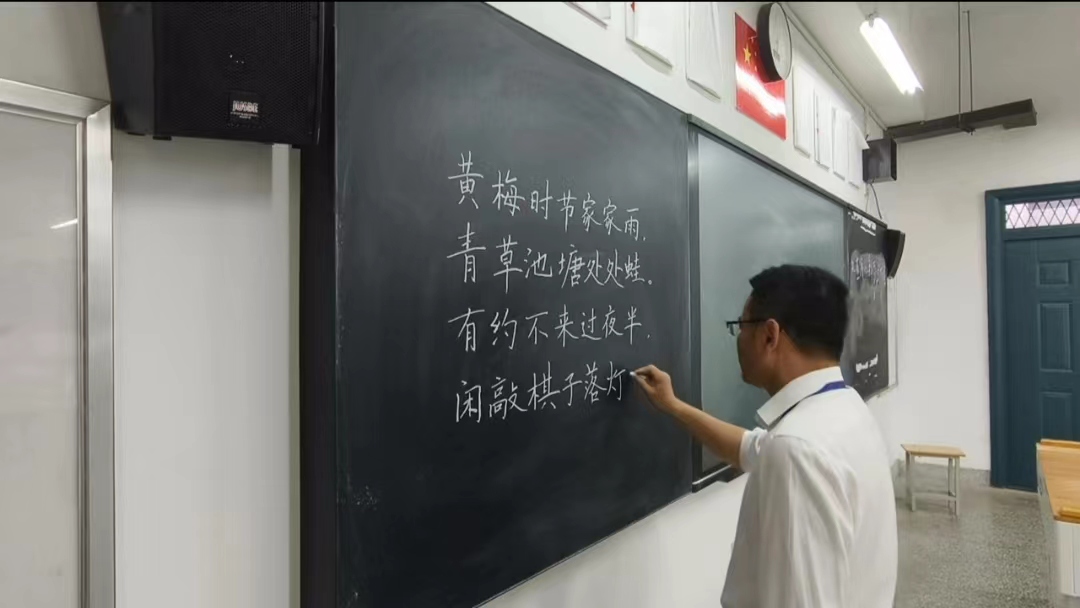 黄梅时节家家雨，
青草池塘处处蛙。
有约不来过夜半，
闲敲棋子落灯